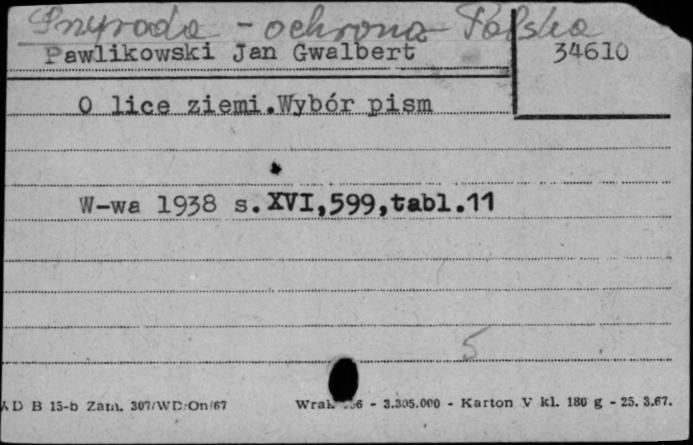 Przyroda - ochrona Polska
Pawlikowski Jan Gwalbert
34610
O lice ziemi.Wybór pism
W-wa 1938 s.XVI,599,tabl.11
5
AD B 15-b Zam. 307/WD/On/67
6 - 3.305.000 - Karton V kl. 180 g - 25. 3.67.